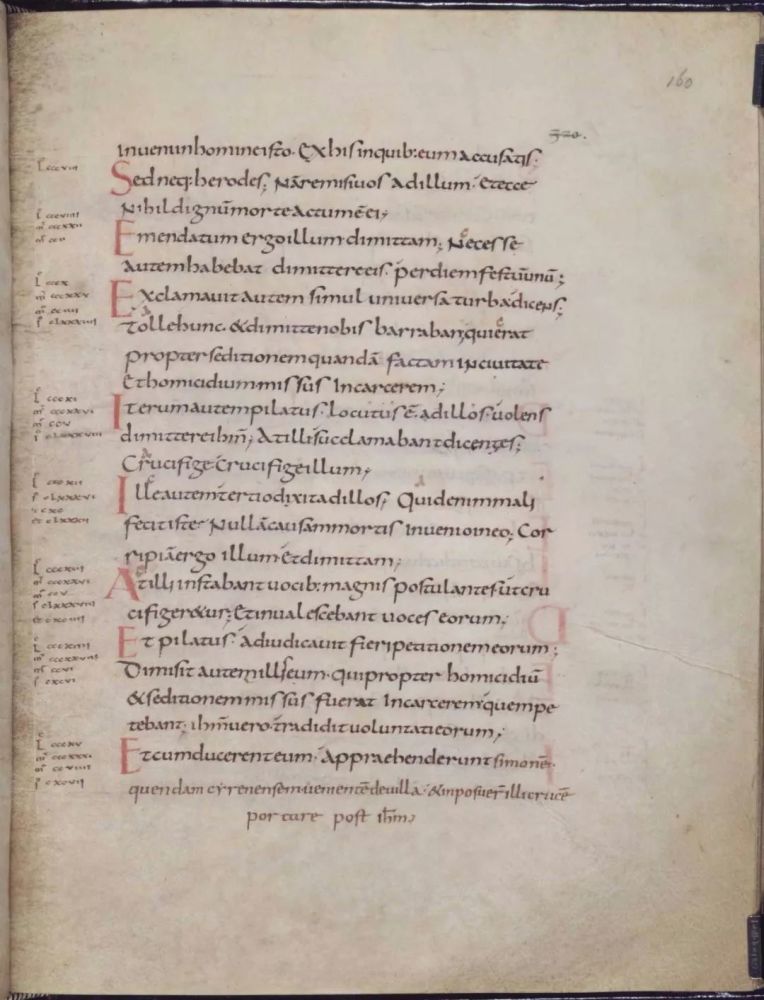 160
320.
inueni in homine isto. Ex his in quib: eum accusatis.
Sed neq: herodes; Nā remisi uos ad illum. Et ecce
Nihil dignū morte actum ē ei;
Emendatum ergo illum dimittam; Necesse
autem habebat dimittere eis. per diem festū unū;
Exclamauit autem simul uniuersa turba dicens;
tolle hunc. & dimitte nobis barraban, qui erat
propter seditionem quandā factam in ciuitate
et homicidium missus In carcerem;
Iterum autem pilatus. locutus ē. ad illos. uolens
dimittere ihm̄; At illi succlamabant dicentes;
Crucifige. Crucifige illum;
Ille autem tertio dixit ad illos; Quid enim mali
fecit iste. Nullā causam mortis Inuenio in eo; Cor
ripiā ergo illum. Et dimittam;
At illi instabant uocib: magnis postulantes ut cru
cifiger&ur; Et inualescebant uoces eorum;
Et pilatus. adiudicauit fieri petitionem eorum;
Dimisit autem illis eum. qui propter homicidiū
& seditionem missus fuerat In carcerem. quem pe
tebant. ihm̄ uero. tradidit uoluntati eorum;
Et cum ducerent eum. Appraehenderunt simonē.
quendam cyrenensem uenientē de uilla. & inposuer̄ illi crucē
portare post ihm̄;